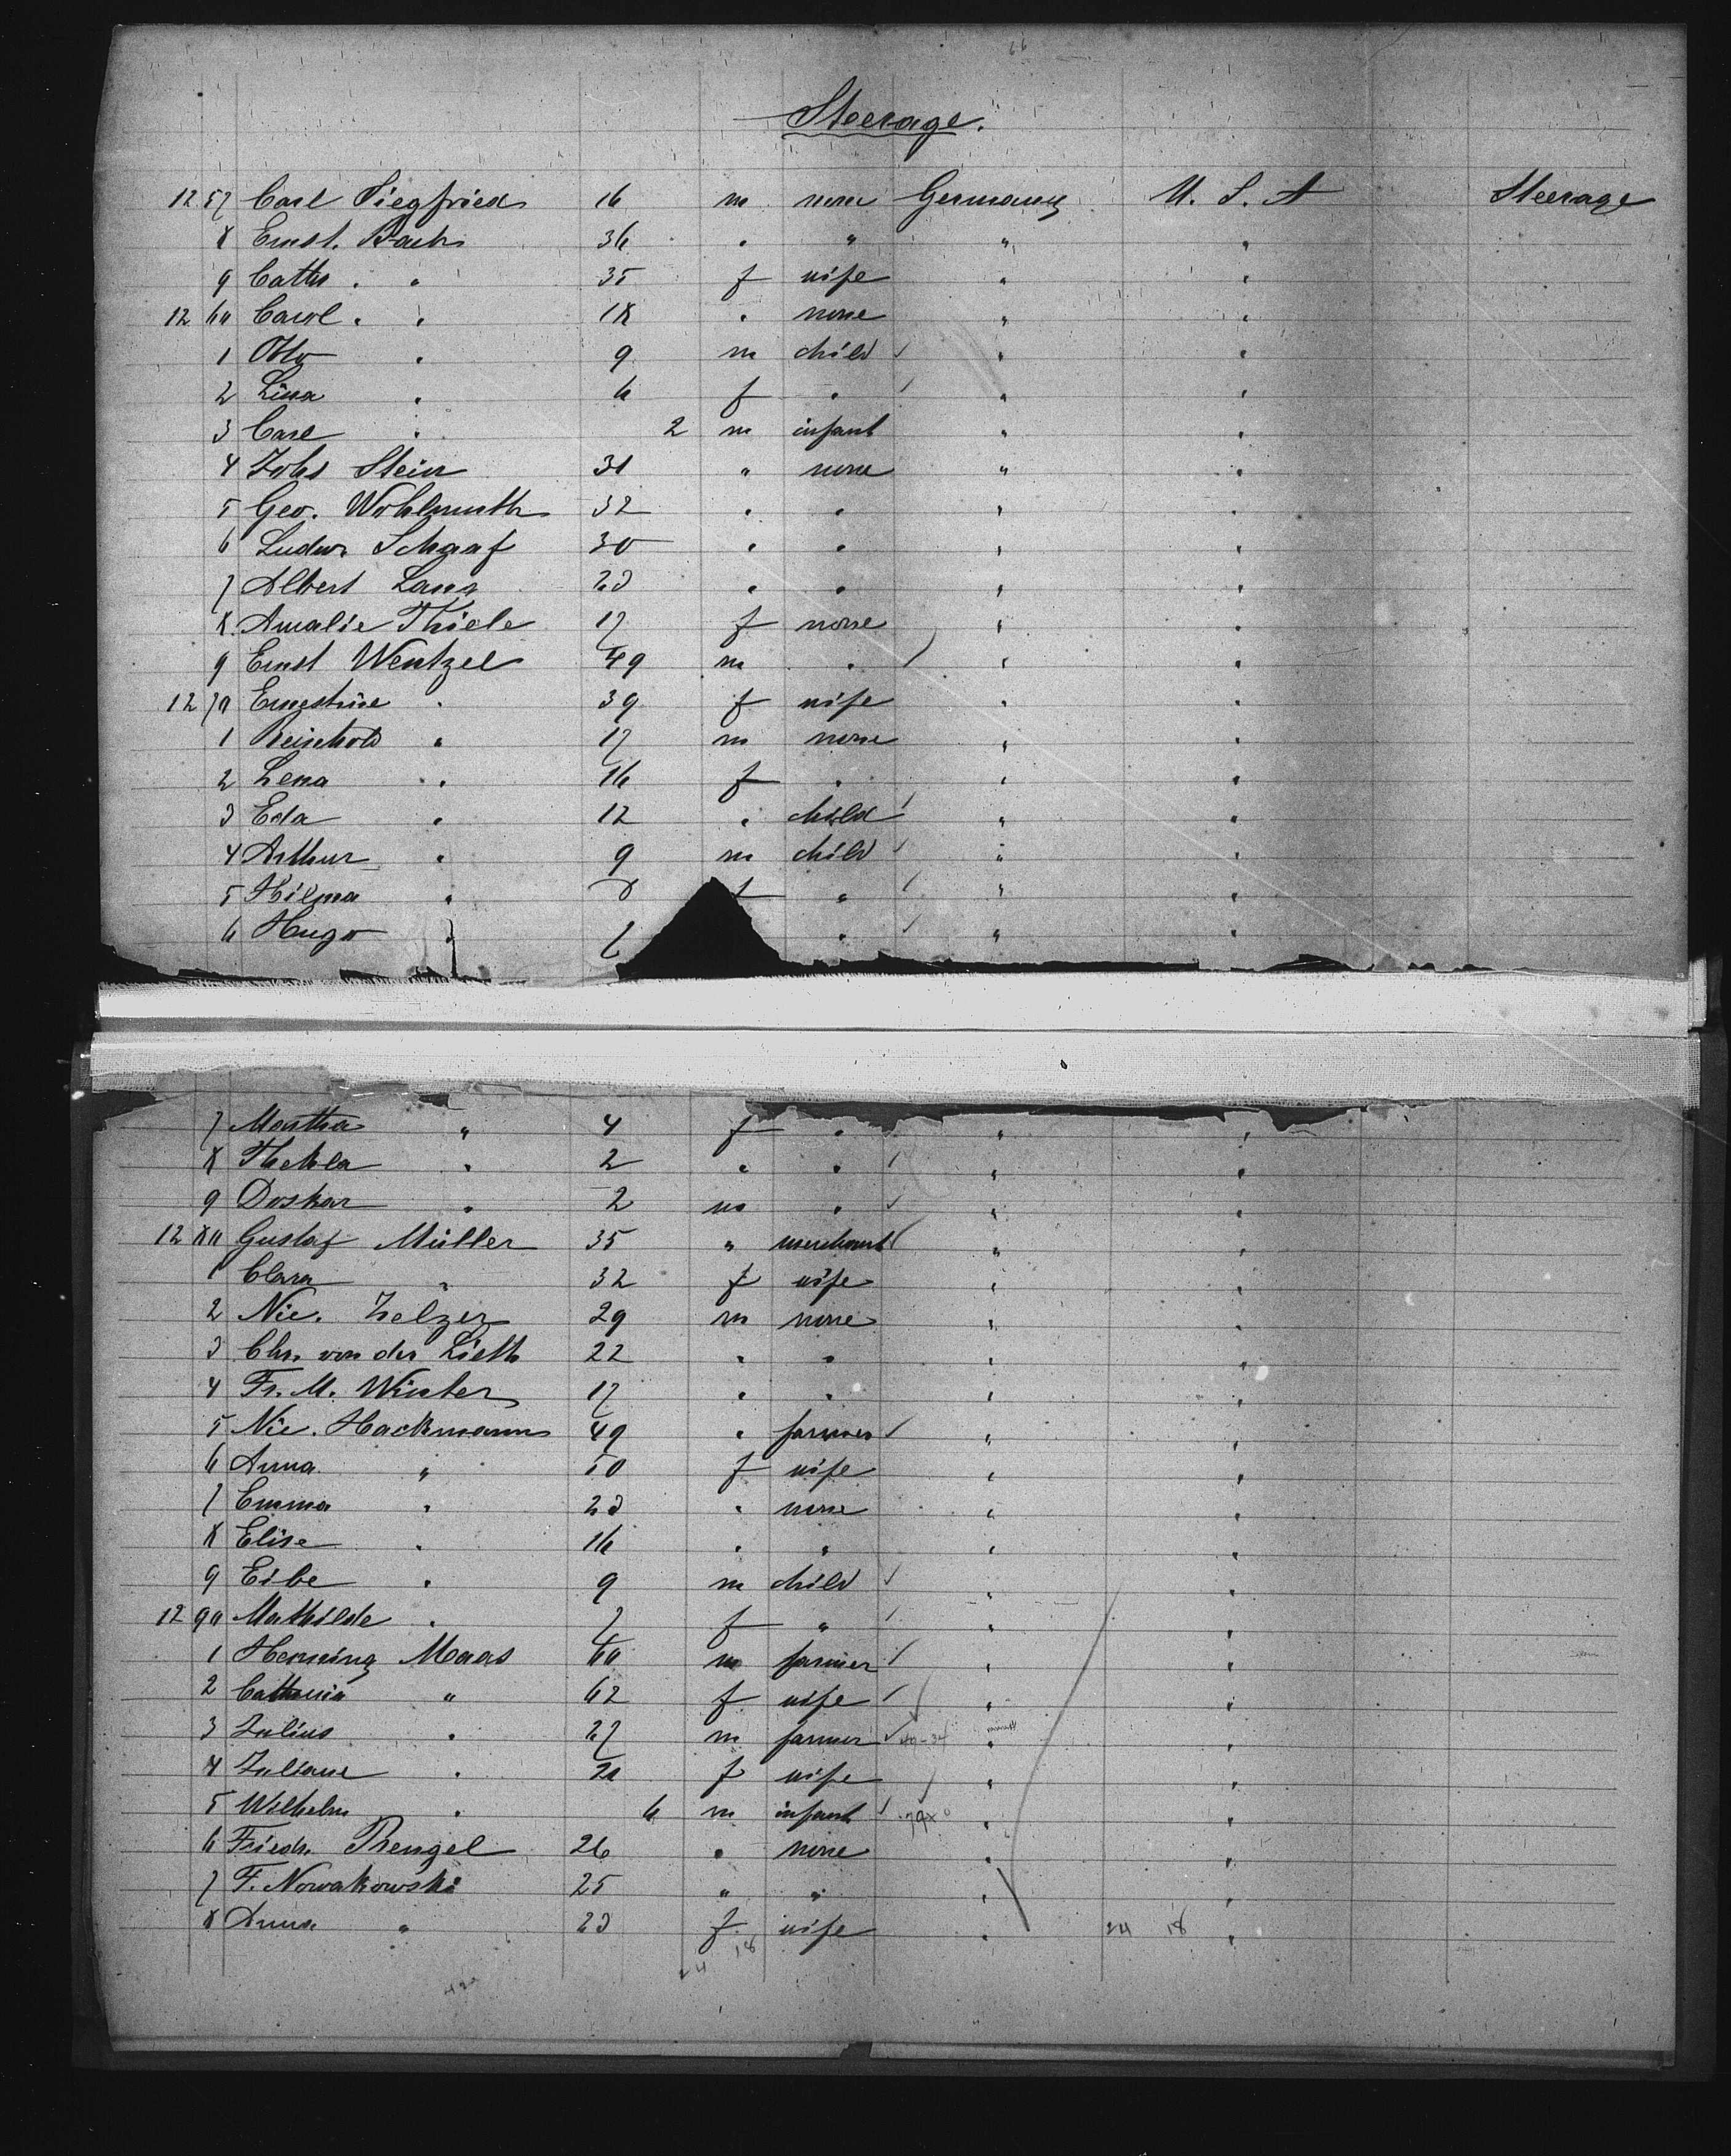 Steerage.
1257 Carl Siegfried 16 m none Germany U. S. A Steerage
8 Ernst. Bach 36 " " " "
9 Cath. " 35 f wife " "
1260 Carol. " 18 " none " "
1 Otto " 9 m child " "
2 Lina " 6 f " " "
3 Carl " 2 m infant " "
4 Johs Stein 31 " none " "
5 Geo. Wohlmuth 32 " " " "
6 Ludw. Schaaf 30 " " " "
7 Albert Lang 23 " " " "
8 Amalie Thiele 17 f none " "
9 Ernst Wentzel 49 m " " "
1270 Ernestine " 39 f wife " "
1 Reinhold " 17 m none " "
2 Lena " 16 f " " "
3 Eda " 12 " child " "
4 Arthur " 9 m child " "
5 Hilma " 8 f " " "
6 Hugo " " " "
7 Martha " 4 f " " "
8 Thekla " 2 " " " "
9 Doskar " 2 m " " "
1280 Gustaf Müller 35 " merchant " "
1 Clara " 32 f wife " "
2 Nic. Zelzer 29 m none " "
3 Chr. von der Lieth 22 " " " "
4 Fr. M. Winter 17 " " " "
5 Nic. Hackmann 49 " farmer " "
6 Anna " 50 f wife " "
7 Emma " 23 " none " "
8 Elise " 16 " " " "
9 Eibe " 9 m child " "
1290 Mathilde " 7 f " " "
1 Henning Maas 60 m farmer " "
2 Catharina " 62 f wife " "
3 Julius " 27 m farmer " "
4 Juliane " f wife " "
5 Wilhelm " 6 m infant " "
6 Friedr. Rengel 26 " none " "
7 F. Nowakowski 25 " " " "
8 Anna " 23 f wife " "
24 18
24 18